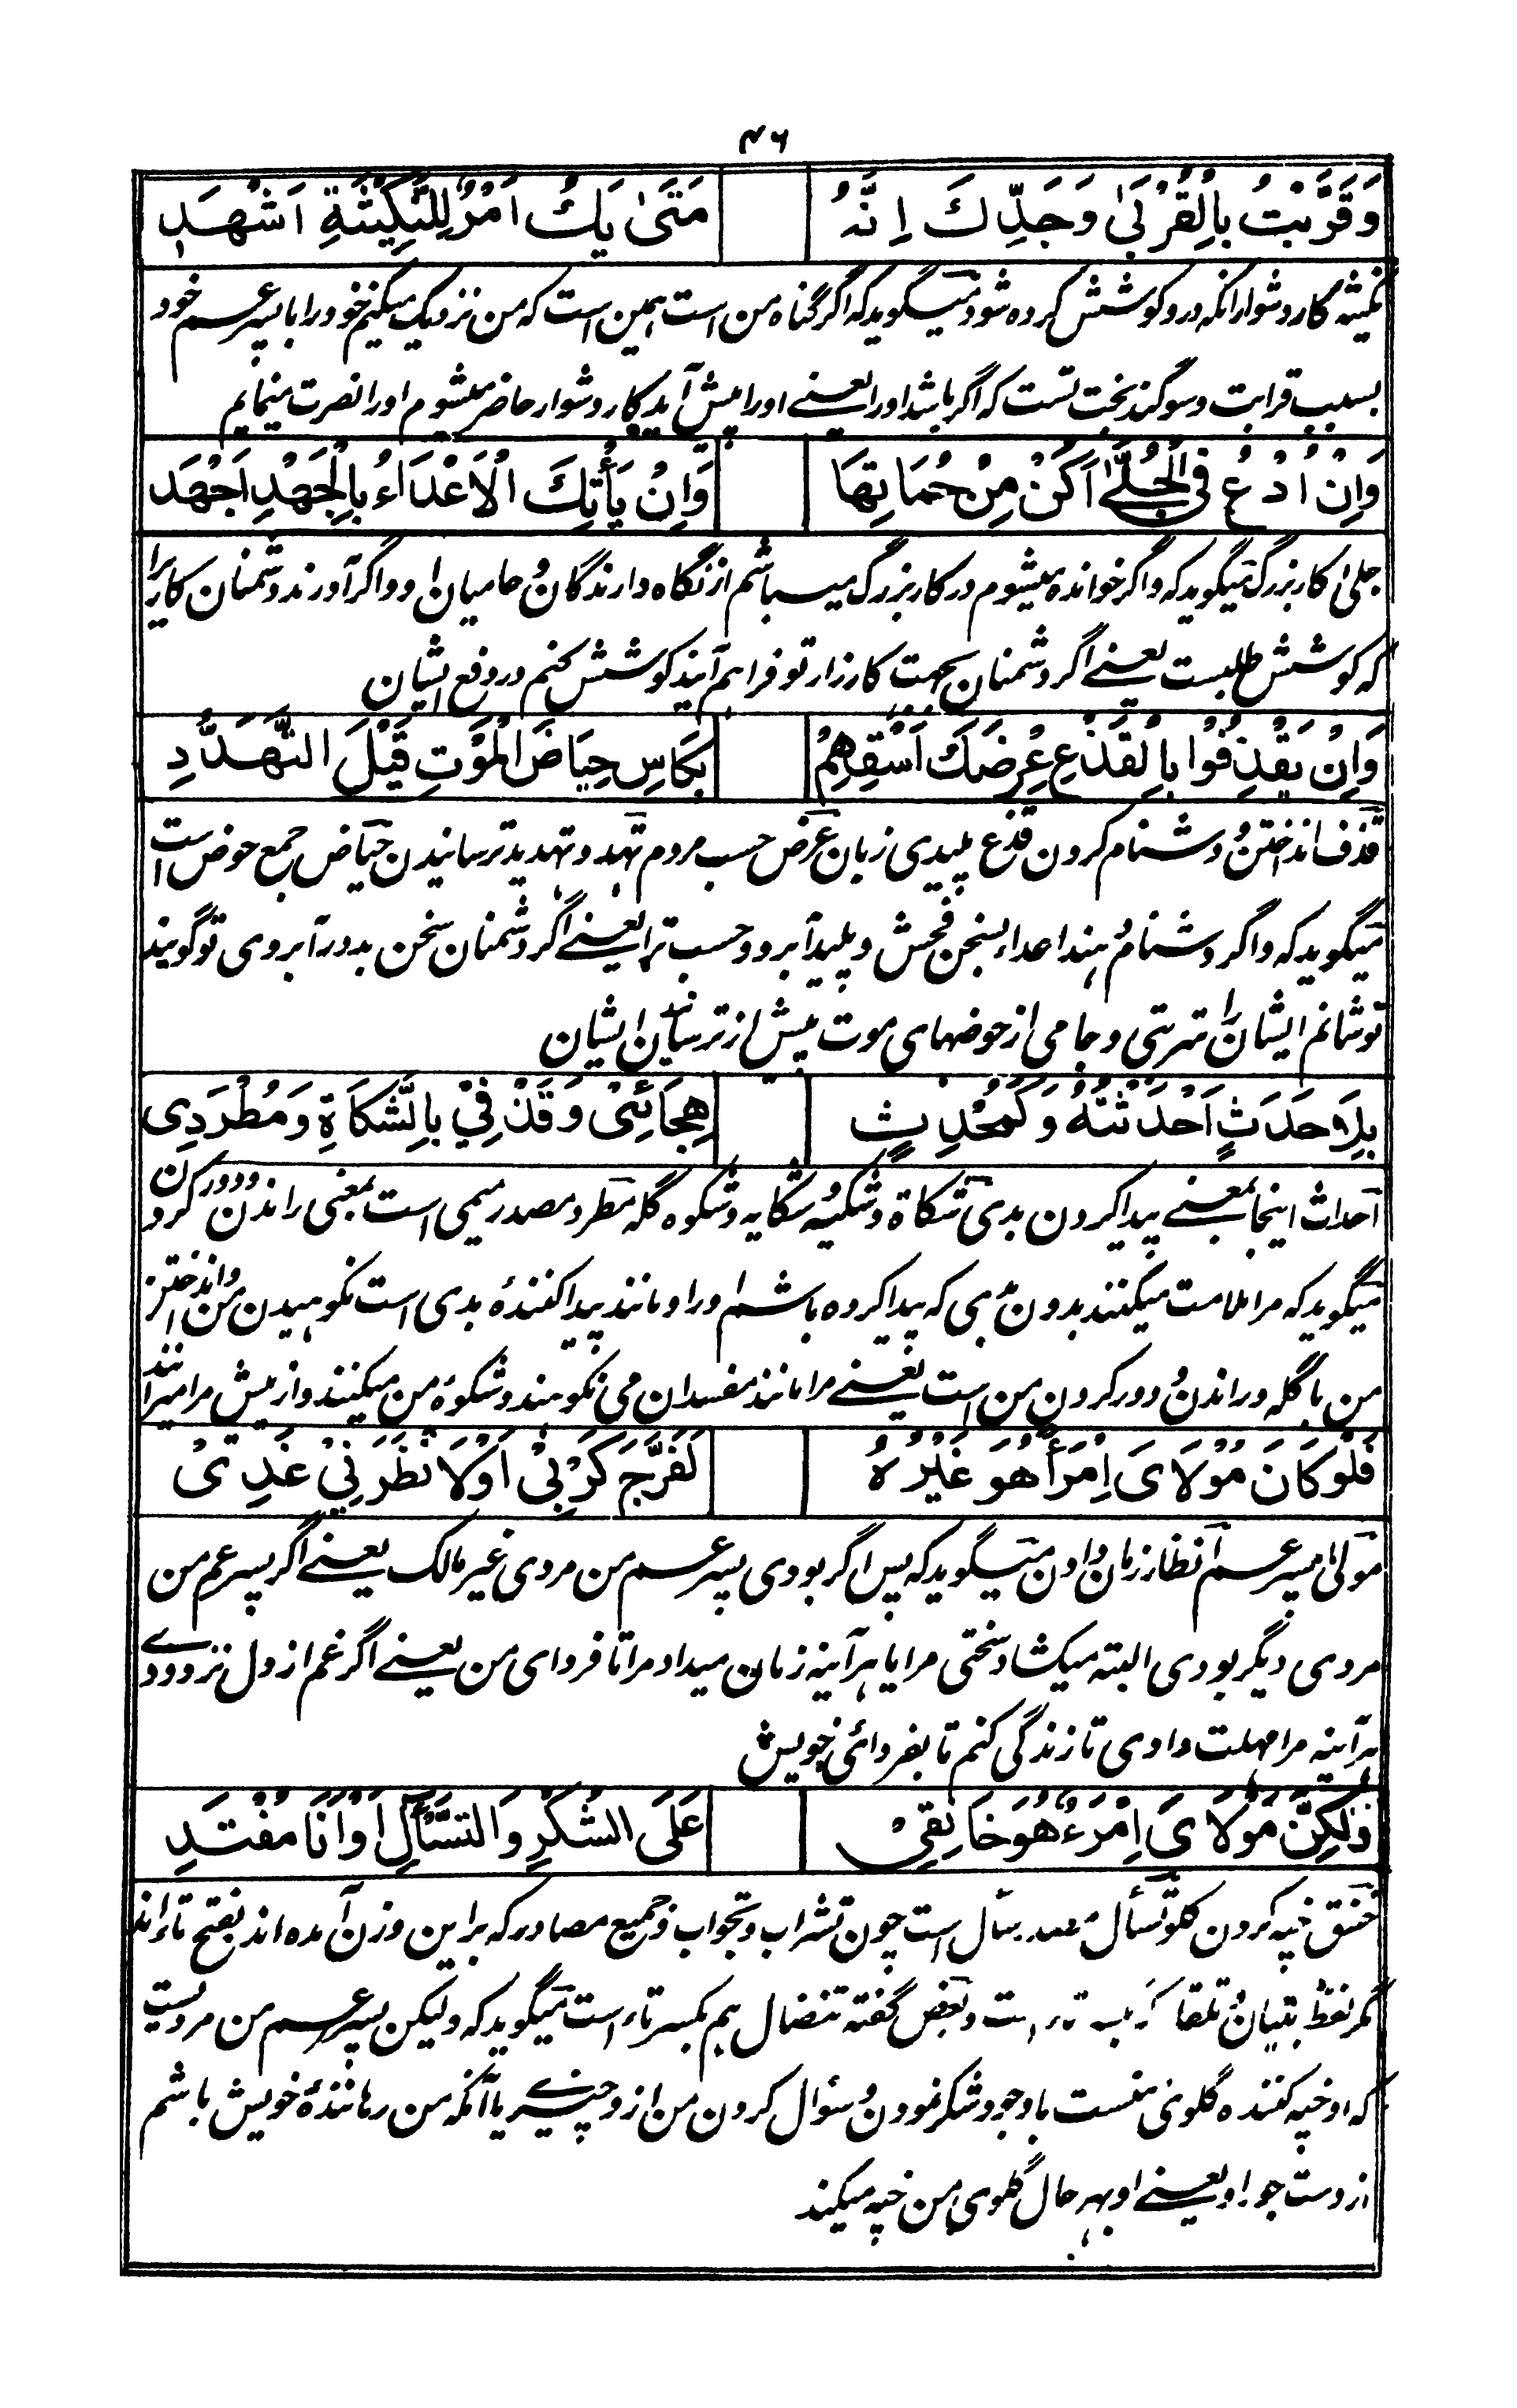 ۴۶
وَقَرَّبْتُ بِالْقُرْبَىٰ وَجَدِّكَ اِنَّهٗ مَتَىٰ يَكُ اَمْرٌ لِلنَّكِيْثَةِ اَشْهَدِ
نکیثه کار دشوار انکه درو کوشش کرده شود میگوید که اگر گناه من است همین است که من نزدیک میکنم خود را با پسر عم خود
بسبب قرابت و سوگند بخت تست که اگر باشد او را یعنے او را پیش آید کار دشوار حاضر میشوم او را نصرت مینمایم
وَاِنْ اُدْعَ فِى الْجُلّٰى اَكُنْ مِنْ حُمَاتِهَا وَاِنْ يَأْتِكَ الْاَعْدَاءُ بِالْجَهْدِ اَجْهَدِ
جلی کار بزرگ میگوید که و اگر خوانده میشوم در کار بزرگ میباشم از نگاه دارندگان و حامیان او و اگر آورند دشمنان کاریرا
که کوشش طلبست یعنے اگر دشمنان بجهت کارزار تو فراهم آیند کوشش کنم در دفع ایشان
وَاِنْ يَقْذِفُوْا بِالْقَذْعِ عِرْضَكَ اَسْقِهِمْ بِكَاسِ حِيَاضِ الْمَوْتِ قَبْلَ التَّهَدُّدِ
قذف انداختن و دشنام کردن قذع پلیدی زبان عرض حسب مردم تهدد و تهدید ترسانیدن حیاض جمع حوض است
میگوید که و اگر دشنام دهند اعداء بسخن فحش و پلید آبرو و حسب ترا یعنے اگر دشمنان سخن بد در آبروی تو گویند
نوشانم ایشان را شربتی و جامی از حوضهای موت پیش از ترسانیدن ایشان
بِلَا حَدَثٍ اَحْدَثْتُهٗ وَكَمُحْدِثٍ هِجَائِىْ وَقَذْفِىْ بِالشَّكَاةِ وَمُطْرَدِى
احداث اینجا بمعنے پیدا کردن بدی شکاة و شکیه شکایه و شکوه گله مطرد مصدر میمی است بمعنی راندن و دور کردن
میگوید که مرا ملامت میکنند بدون بدی که پیدا کرده باشم او را و مانند پیدا کننده بدی است نکوهیدن من و انداختن
من با گله و راندن و دور کردن من است یعنے مرا مانند مفسدان می نکوهند و شکوه من میکنند و از پیش مرا میرانند
فَلَوْ كَانَ مَوْلَاىَ اِمْرَأً هُوَ غَيْرُهٗ لَفَرَّجَ كَرْبِىْ اَوْ لَاَنْظَرَنِىْ غَدِىْ
مولی پسر عم انظار زمان دادن میگوید که پس اگر بودی پسر عم من مردی غیر مالک یعنے اگر پسر عم من
مردی دیگر بودی البته میکشاد سختی مرا یا هر آینه زمان میداد مرا تا فردای من یعنے اگر غم از دل نزدودے
هر آینه مرا مهلت دادی تا زندگی کنم تا بفردائی خویش
وَلٰكِنَّ مَوْلَاىَ اِمْرَءٌ هُوَ خَانِقِىْ عَلَى الشُّكْرِ وَالتَّسْاٰلِ اَوْ اَنَا مُفْتَدِ
خنق خپه کردن گلو تسأل مصدر سأل است چون تشراب و تجواب و جمیع مصادر که براین وزن آمده اند بفتح تاء اند
مگر لفظ تبیان و تلقا که بکسر تاء است و بعض گفته تنضال هم بکسر تاء است میگوید که ولیکن پسر عم من مردیست
که او خپه کننده گلوی منست باوجود شکر نمودن و سئوال کردن من از و چیزے یا آنکه من رهاننده خویش باشم
از دست جور او یعنے او بهر حال گلوی من خپه میکند